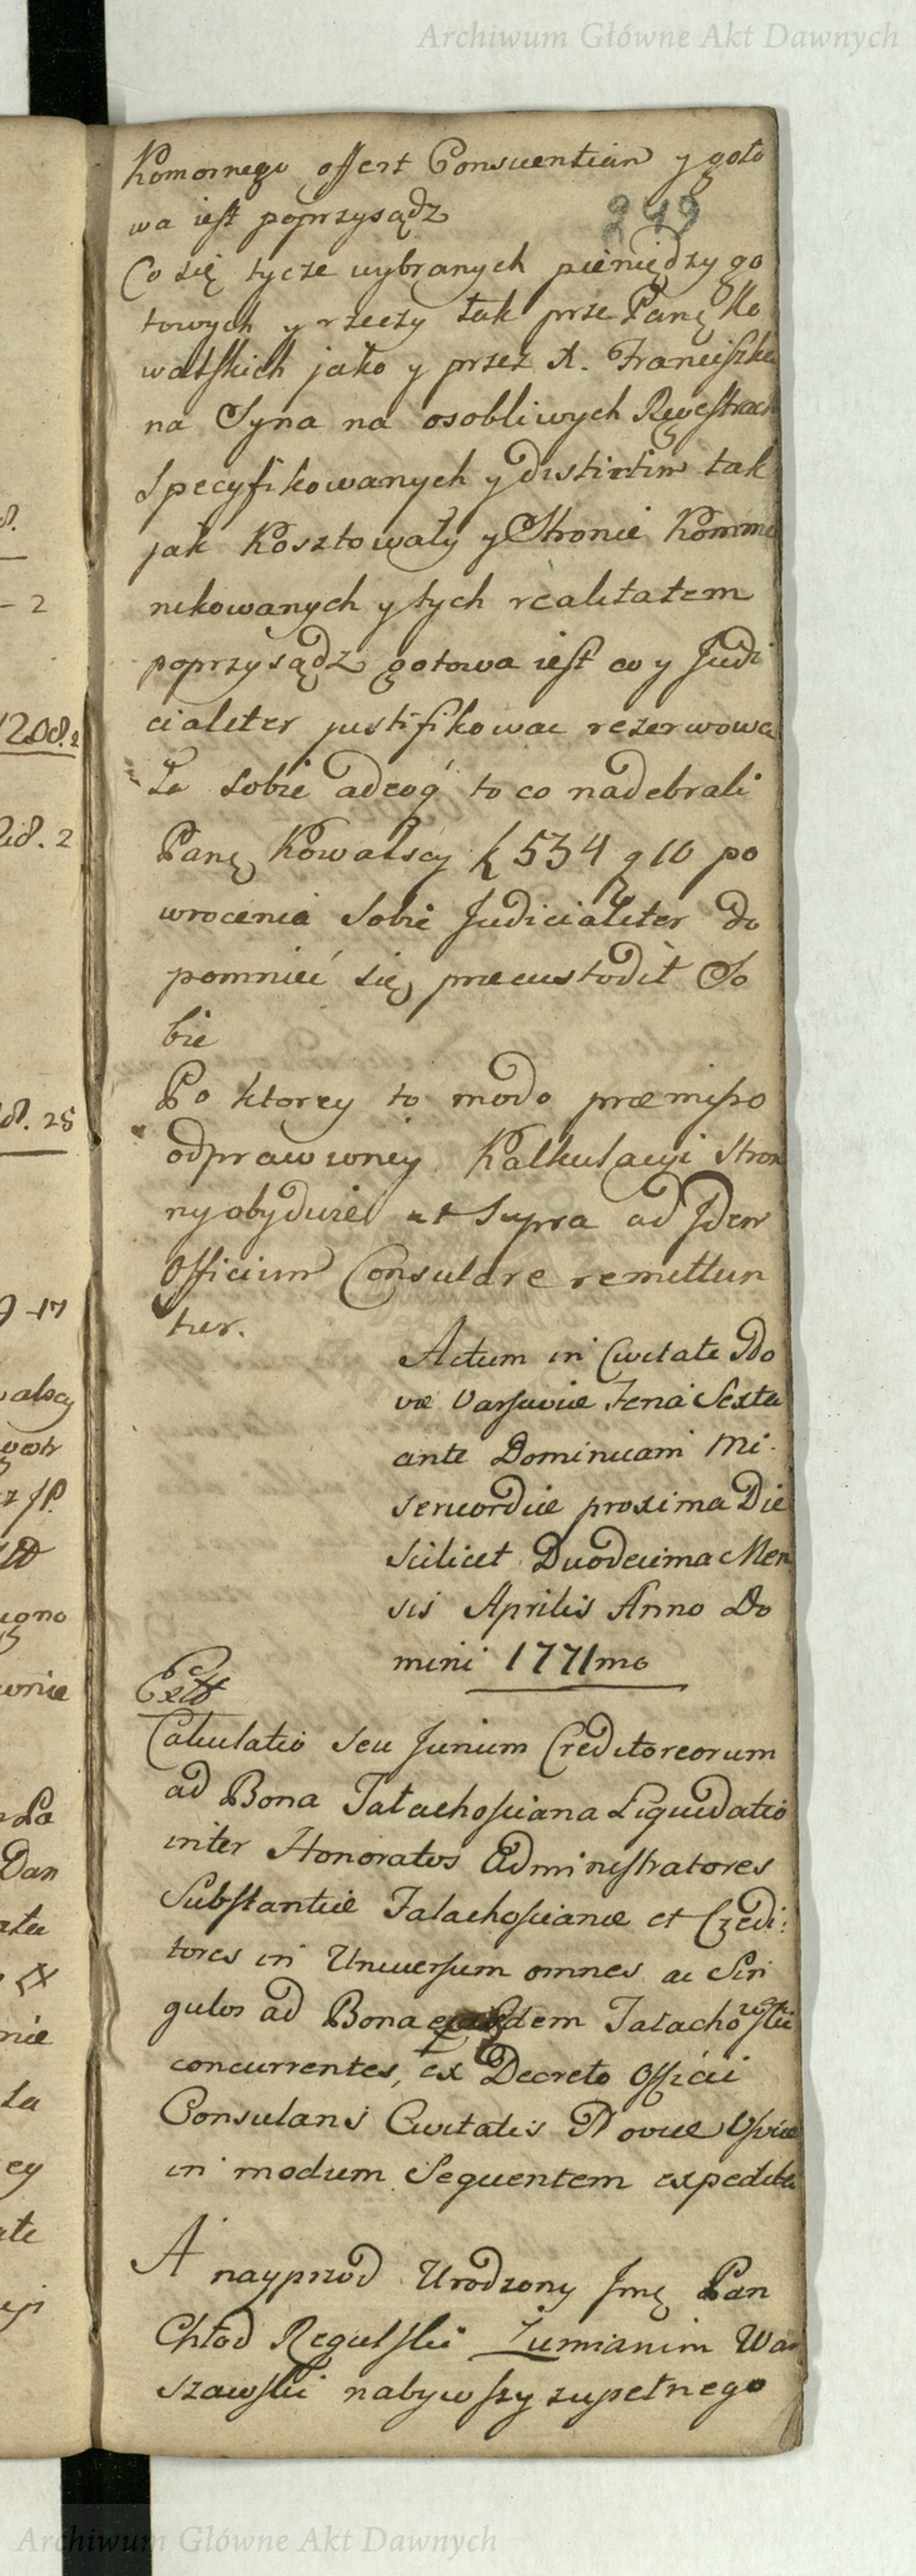 Archiwum Główne Akt Dawnych
Komornego offert Conscientiam y goto
wa iest poprzysądz
249
Co się tycze wybranych pieniędzy go
towych y rzeczy tak prze Panę Ko
walskich jako y przez X. Franciszka
na Syna na osobliwych Regestrach
specyfikowanych y distinctim tak
jak Kosztowały y Stronie Kommu
nikowanych y tych realitatem
poprzysądz gotowa iest co y Judi
cialiter justifikowac rezerwowa
la sobie adeoq to co nadebrali
Panę Kowalscy f 534 g 10 po
wrocenia Sobie Judicialiter do
pomnieć się præcustodit So
bie
Po ktorey to modo præmisso
odprawioney Kalkulacyi Stron
ny obydwie ut Supra ad Idem
Officium Consulare remittun
tur.
Actum in Civitate No
væ Varsaviæ Feria Sexta
ante Dominicam Mi
sericordiæ proxima Die
Scilicet Duodecima Men
sis Aprilis Anno Do
mini 1771mo
Extt
Calculatio seu Jurium Creditoreorum
ad Bona Tatachosciana Liquidatio
inter Honoratos Administratores
Substantiæ Talachoscianæ et Credi:
tores in Universum omnes ac Sin
gulos ad Bona dem Tatacho
concurrentes, ex Decreto Officii
Consularis Civitatis Novæ Vsviæ
in modum Sequentem expedita
A nayprzod Urodzony Jmę Pan
Chład Regulski Ziemianin Wa
szawski nabywszy zupełnego
Archiwum Główne Akt Dawnych